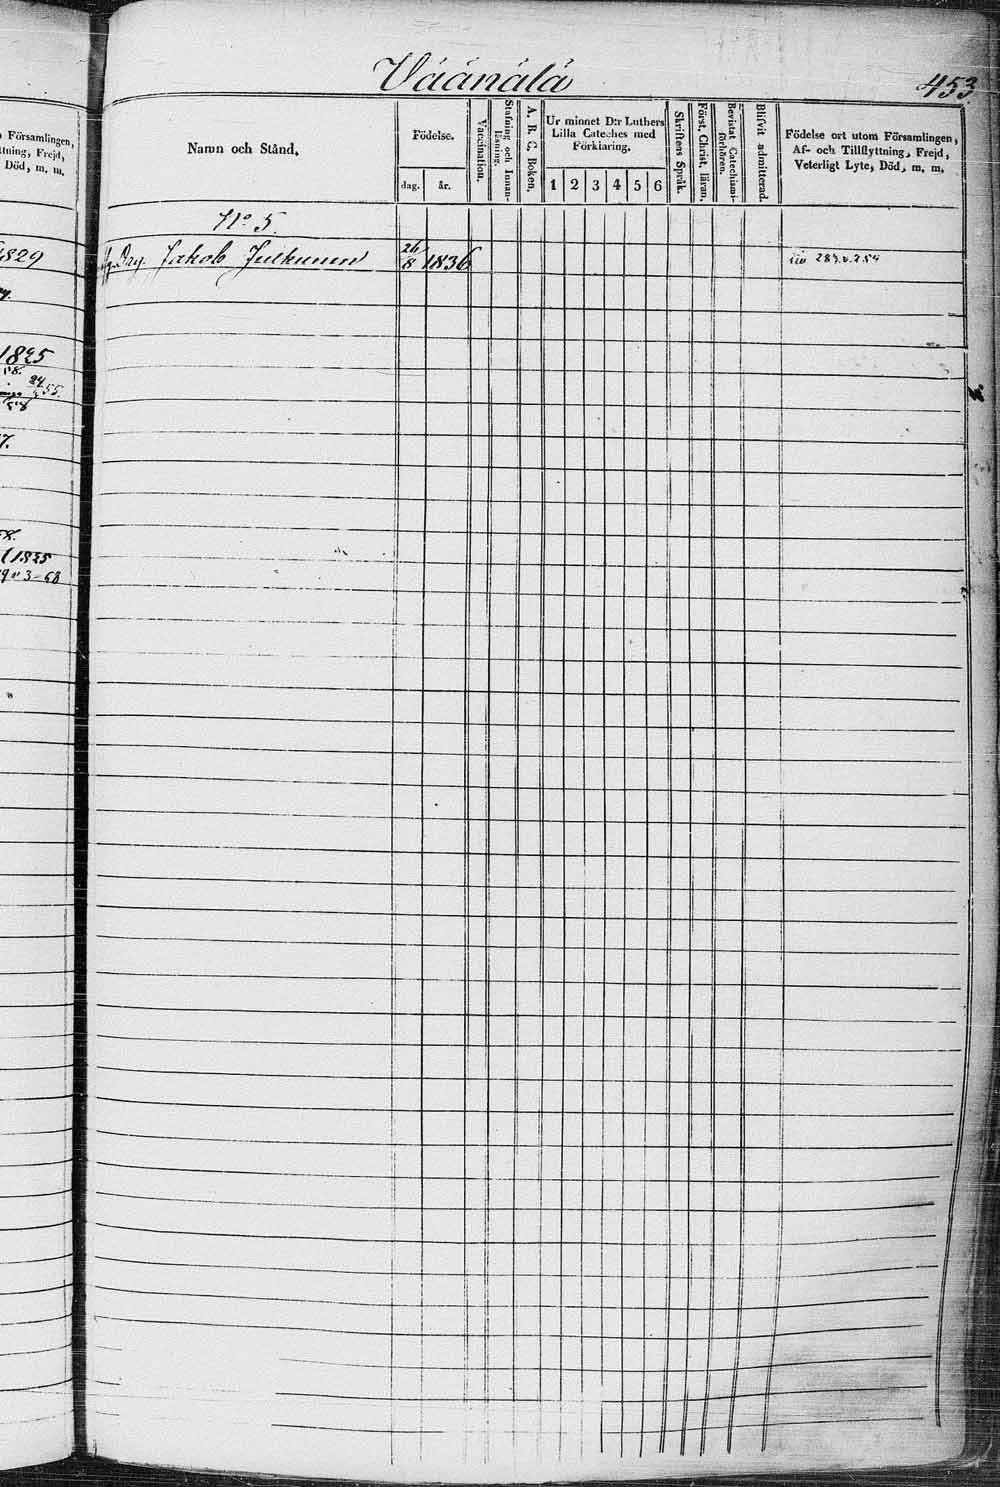 Väänälä
453
Församlingen,
ttning, Frejd,
Död, m. m.
1829
1835
24
55.
58
7.
58.
1835
3-68
Namn och Stånd.
Födelse.
dag.
år.
Vaccination.
Stafning och Innan-
läsning.
A. B. C. Boken.
Ur minnet D:r Luthers
Lilla Cateches med
Förklaring.
1 2 3 4 5 6
Skriftens Språk.
Först. Christ. läran.
Bevistat Catechismi-
förhören.
Blifvit admitterad.
Födelse ort utom Församlingen,
Af- och Tillflyttning, Frejd,
Veterligt Lyte, Död, m. m.
N:o 5.
Jakob Julkunen 26/8 1836